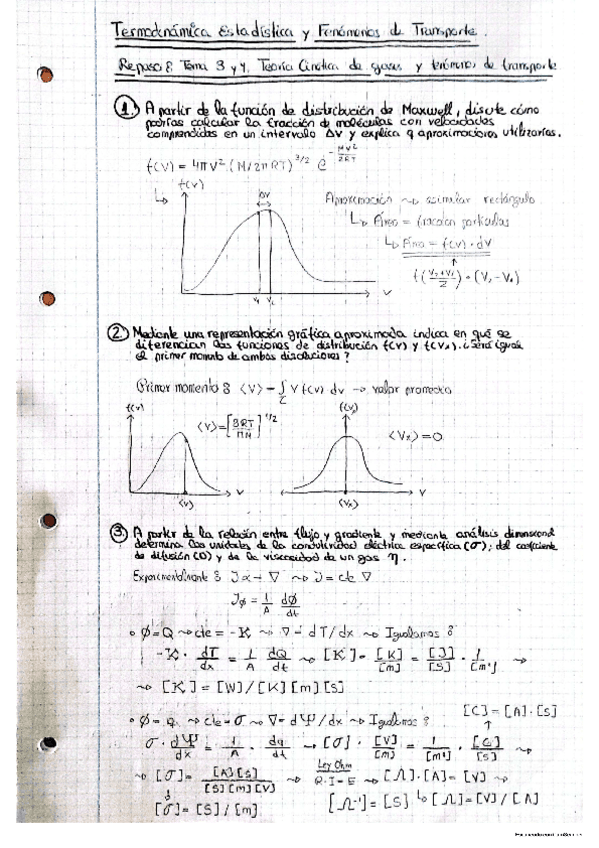 Termodinámica Estadística y Fenómenos de Transporte.
Repaso 8 Tema 3 y 4. Teoría Cinética de gases y fenómenos de transporte
1. A partir de la función de distribución de Maxwell, discute cómo
podrías calcular la fracción de moléculas con velocidades
comprendidas en un intervalo ΔV y explica q aproximaciones utilizarías.
f(V) = 4πV² (M/2πRT)^3/2 e^-MV²/2RT
f(v)
ΔV
V
Aproximación ⤳ asimilar rectángulo
↳ Área = fracción partículas
↳ Área = f(v) · dV
f((V₂+V₁)/2) · (V₂ - V₁)
2. Mediante una representación gráfica aproximada indica en qué se
diferencian las funciones de distribución f(v) y f(Vx). ¿Será igual
el primer momento de ambas
Primer momento 8 ⟨V⟩ = ∫ V f(v) dv → valor promedio
f(v)
⟨V⟩ = [8RT/πM]^1/2
⟨v⟩
V
f(v)
⟨Vx⟩ = 0
⟨Vx⟩
V
3. A partir de la relación entre flujo y gradiente y mediante análisis dimensional
determina las unidades de la conductividad eléctrica específica (σ); del coeficiente
de difusión (D) y de la viscosidad de un gas η.
Experimentalmente 8 J α - ∇ ⤳ J = cte ∇
Jø = 1/A dØ/dt
∘ Ø = Q ⤳ cte = -K ⤳ ∇ - dT/dx ⤳ Igualamos 8
-K · dT/dx = 1/A dQ/dt ⤳ [K] - [K]/[m] = [J]/[S] · 1/[m²] ⤳
⤳ [K] = [W] / [K] [m] [S]
∘ Ø = q ⤳ cte = σ ⤳ ∇ = dΨ/dx ⤳ Igualamos 8
[C] = [A] · [S]
σ · dΨ/dx = 1/A · dq/dt → [σ] · [V]/[m] = 1/[m²] · [C]/[S] ⤳
⤳ [σ] = [A][S]/[S][m][V] ⤳ Ley Ohm R · I = E ⤳ [Ω] · [A] = [V] ⤳
[σ] = [S] / [m]
[Ω⁻¹] = [S] ↳ [Ω] = [V] / [A]